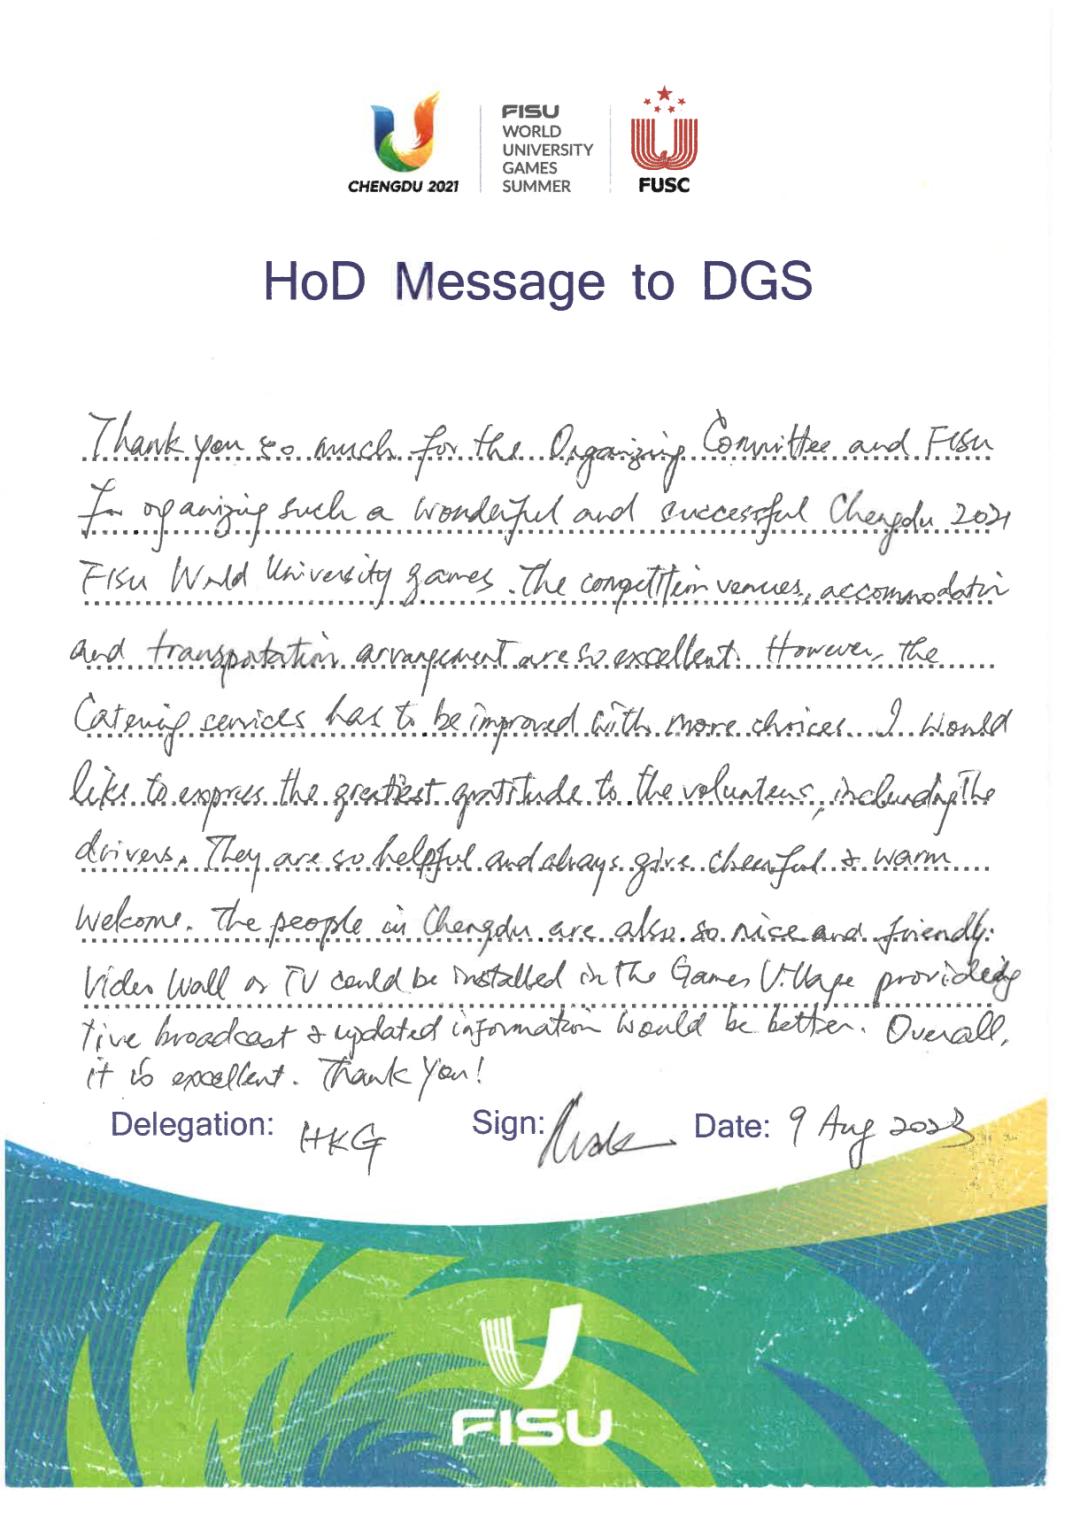 CHENGDU 2021
FISU
WORLD
UNIVERSITY
GAMES
SUMMER
FUSC
HoD Message to DGS
Thank you so much for the Organizing Committee and FISU
for organizing such a wonderful and successful Chengdu 2021
FISU World University games. The competition venues, accommodation
and transportation arrangement are so excellent. However, the
Catering services has to be improved with more choices. I would
like to express the greatest gratitude to the volunteers, including the
drivers. They are so helpful and always give cheerful & warm
welcome. The people in Chengdu are also so nice and friendly.
Video Wall or TV could be installed in the Games Village providing
live broadcast & updated information would be better. Overall,
it is excellent. Thank You!
Delegation: HKG Sign: Date: 9 Aug 2023
FISU